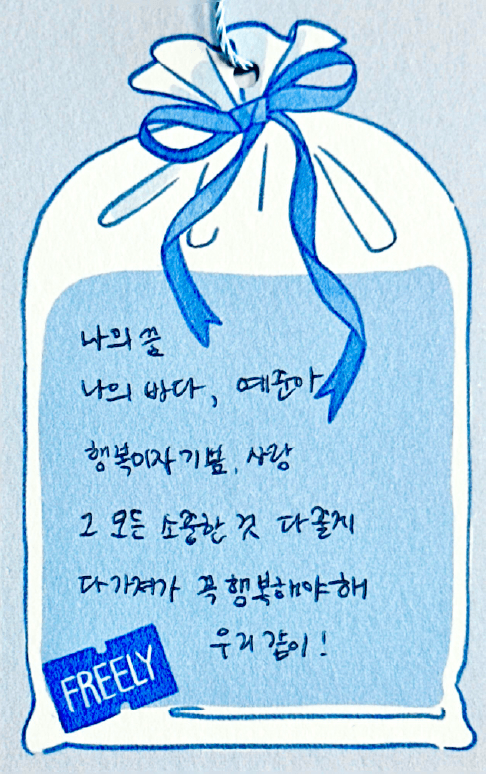 나의 꿈
나의 바다, 예준아
행복이자 기쁨, 사랑
그 모든 소중한 것 다 줄게
다 가져가 꼭 행복해야 해
우리 같이!
FREELY